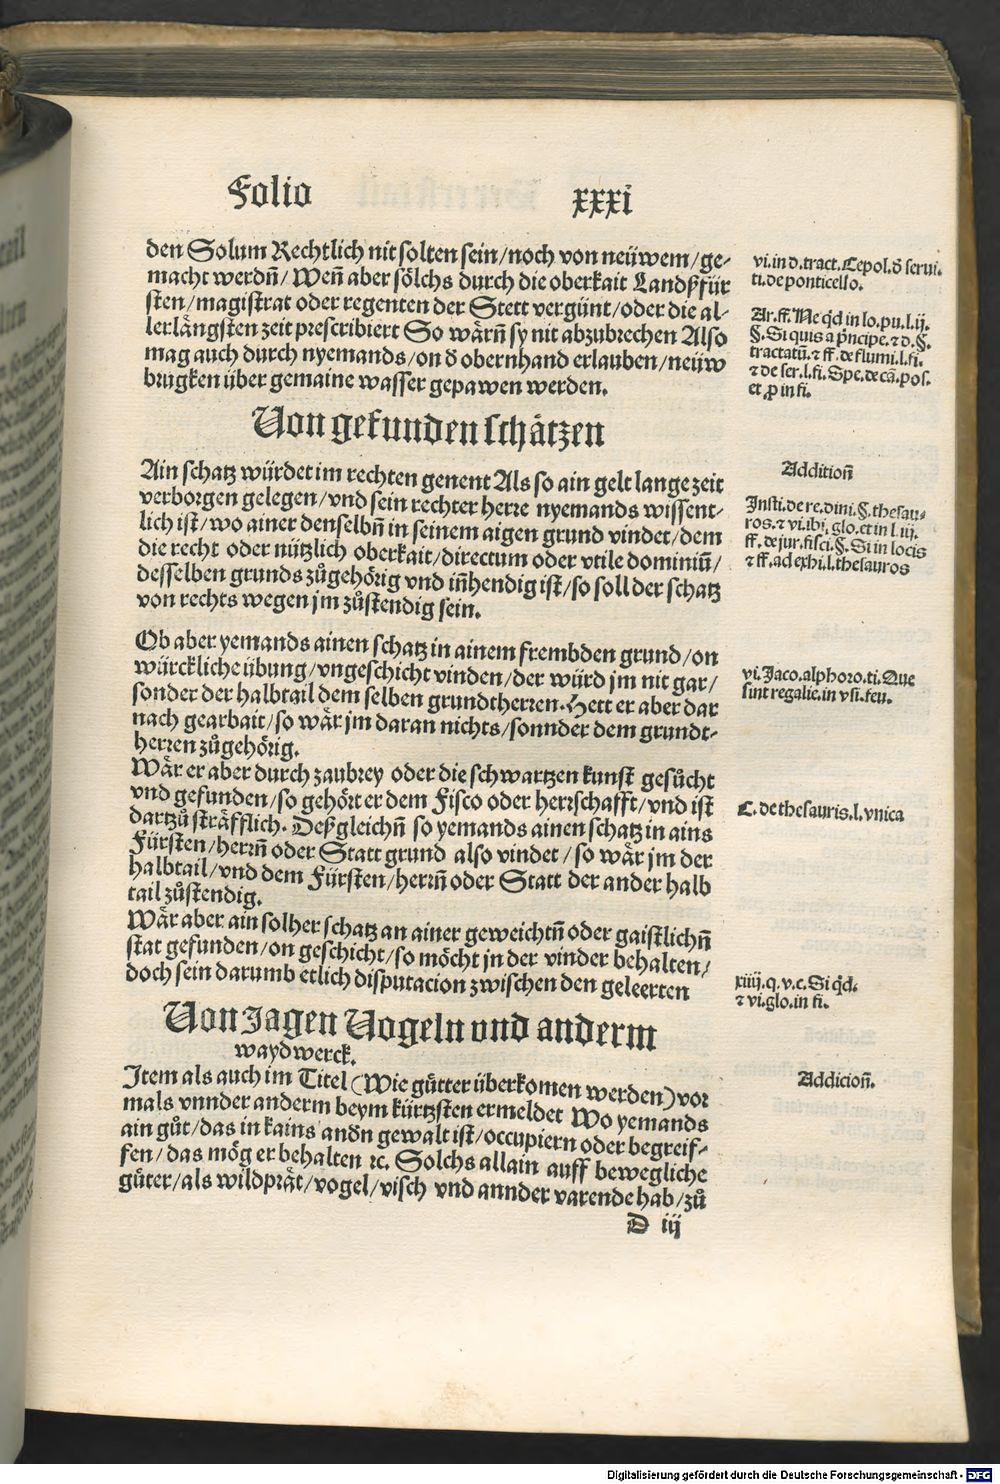 Folio xxxi
den Solum Rechtlich nit solten sein/noch von neüwem/ge-
macht werdn̄/ Wen̄ aber sölchs durch die oberkait Landßfür
sten/magistrat oder regenten der Stett vergünt/oder die al-
lerlängsten zeit prescribiert So wärn̄ sy nit abzubrechen Also
mag auch durch nyemands/on d̄ obernhand erlauben/neüw
brugken über gemaine wasser gepawen werden.
vi.in d.tract.Cepol.d̄ serui-
ti.de ponticello.
Ar.ff.Ne qd̄ in lo.pu.l.ij.
§.Si quis a p̄ncipe.⁊ d.§.
tractatū.⁊ ff.de flumi.l.fi.
⁊ de ser.l.fi.Spe.de cā.pos.
et ꝓ in fi.
Von gefunden schätzen
Ain schatz würdet im rechten genent Als so ain gelt lange zeit
verborgen gelegen/vnd sein rechter herre nyemands wissent-
lich ist/wo ainer denselbn̄ in seinem aigen grund vindet/dem
die recht oder nützlich oberkait/directum oder vtile dominiū/
desselben grunds zůgehörig vnd in̄hendig ist/so soll der schatz
von rechts wegen jm zůstendig sein.
Addition̄
Insti.de re.diui.§.thesau-
ros.⁊ vi.ibi.glo.et in l.iij.
ff.de jur.fisci.§.Si in locis
⁊ ff.ad exhi.l.thesauros
Ob aber yemands ainen schatz in ainem frembden grund/on
würckliche übung/vngeschicht vinden/der würd jm nit gar/
sonder der halbtail dem selben grundtherren.Hett er aber dar
nach gearbait/so wär jm daran nichts/sonnder dem grundt-
herren zůgehörig.
vi.Jaco.alphoro.ti.Que
sint regalie.in vsi.feu.
Wär er aber durch zaubrey oder die schwartzen kunst gesůcht
vnd gefunden/so gehört er dem Fisco oder herrschafft/vnd ist
dartzů sträfflich. Deßgleichn̄ so yemands ainen schatz in ains
Fürsten/herrn̄ oder Statt grund also vindet/so wär jm der
halbtail/vnd dem Fürsten/herrn̄ oder Statt der ander halb
tail zůstendig.
C.de thesauris.l.vnica
Wär aber ain solher schatz an ainer geweichtn̄ oder gaistlichn̄
stat gefunden/on geschicht/so möcht jn der vinder behalten/
doch sein darumb etlich disputacion zwischen den geleerten
xiiij.q.v.c.Si qd̄.
⁊ vi.glo.in fi.
Von Jagen Vogeln vnd anderm
waydwerck.
Item als auch im Titel (Wie gůtter überkomen werden) vor
mals vnnder anderm beym kürtzsten ermeldet Wo yemands
ain gůt/das in kains andn̄ gewalt ist/occupiern oder begreif-
fen/das mög er behalten ⁊c. Solchs allain auff bewegliche
güter/als wildprät/vogel/visch vnd annder varende hab/zů
Addicion̄.
D iij
Digitalisierung gefördert durch die Deutsche Forschungsgemeinschaft - DFG